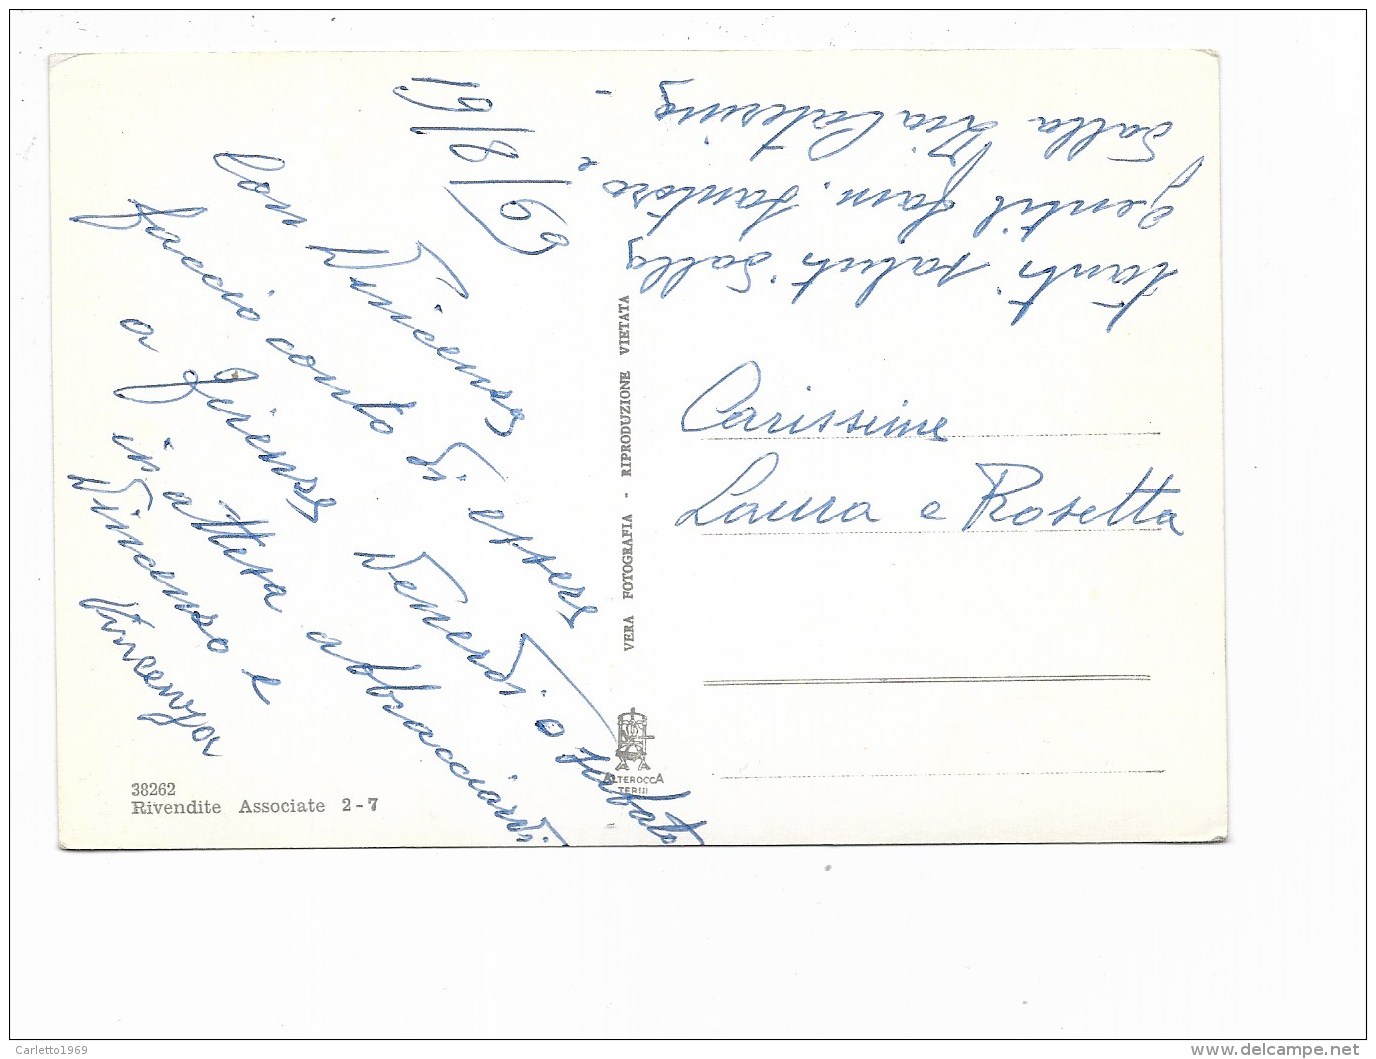 19/8/69
Con Vincenzo
faccio conto di essere
a Firenze Venerdi o Sabato
in attesa abbracciandovi
Vincenzo e
Vincenza
Tanti saluti dalla
gentil fam. Santoro e
dalla Zia Caterina
Carissime
Laura e Rosetta
VERA FOTOGRAFIA - RIPRODUZIONE VIETATA
ALTEROCCA
TERNI
38262
Rivendite Associate 2-7
Carletto1969
delcampe.net